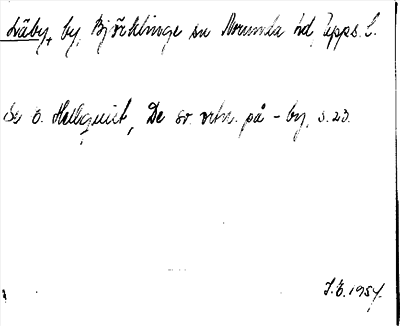 Läby, by, Björklinge sn Norunda hd, Upps. l.
Se E. Hellquist, De sv. ortn. på -by, s. 23.
J.E. 1954.